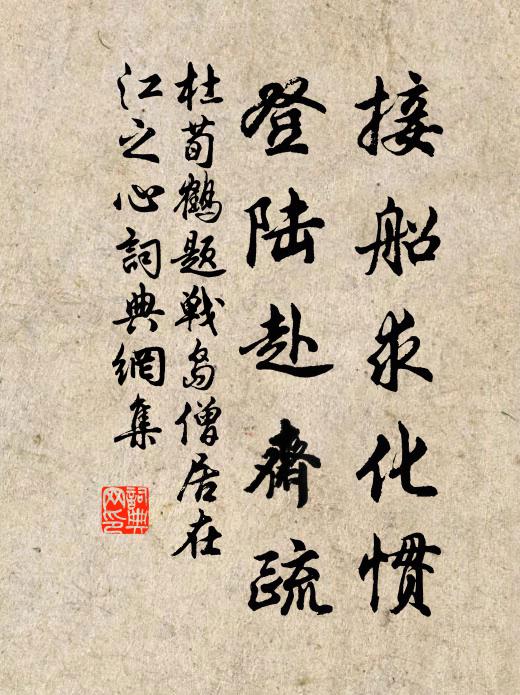 接船求化惯
登陆赴齋疏
杜荀鶴题戰岛僧居在
江之心詞典網集
詞典
网印